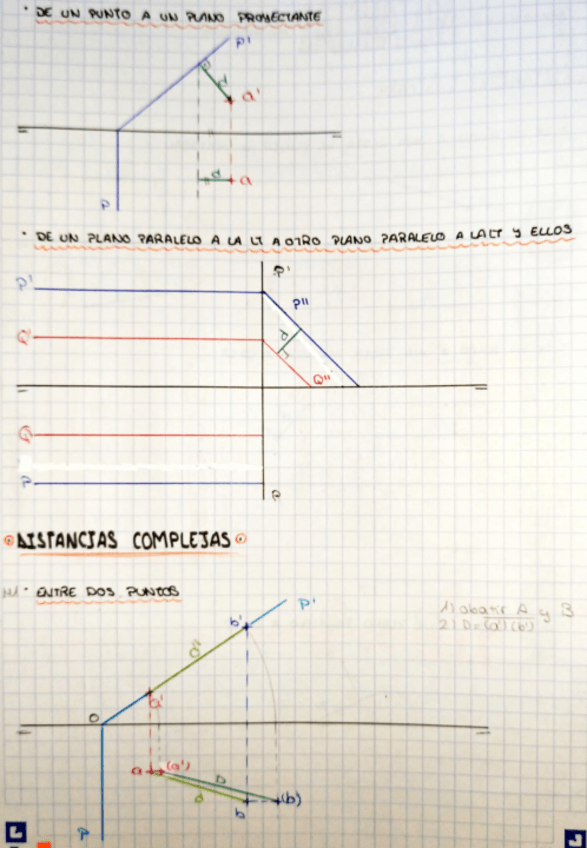 · DE UN PUNTO A UN PLANO PROYECTANTE
P'
d
a'
d
a
P
· DE UN PLANO PARALELO A LA LT A OTRO PLANO PARALELO A LA LT Y ELLOS
P'
P'
P"
Q'
d
Q"
Q
P
P
DISTANCIAS COMPLEJAS
· ENTRE DOS PUNTOS
P'
1) abatir A y B
2) D=(a')(b')
b'
d'
a'
O
a
(a')
D
d
b
(b)
P